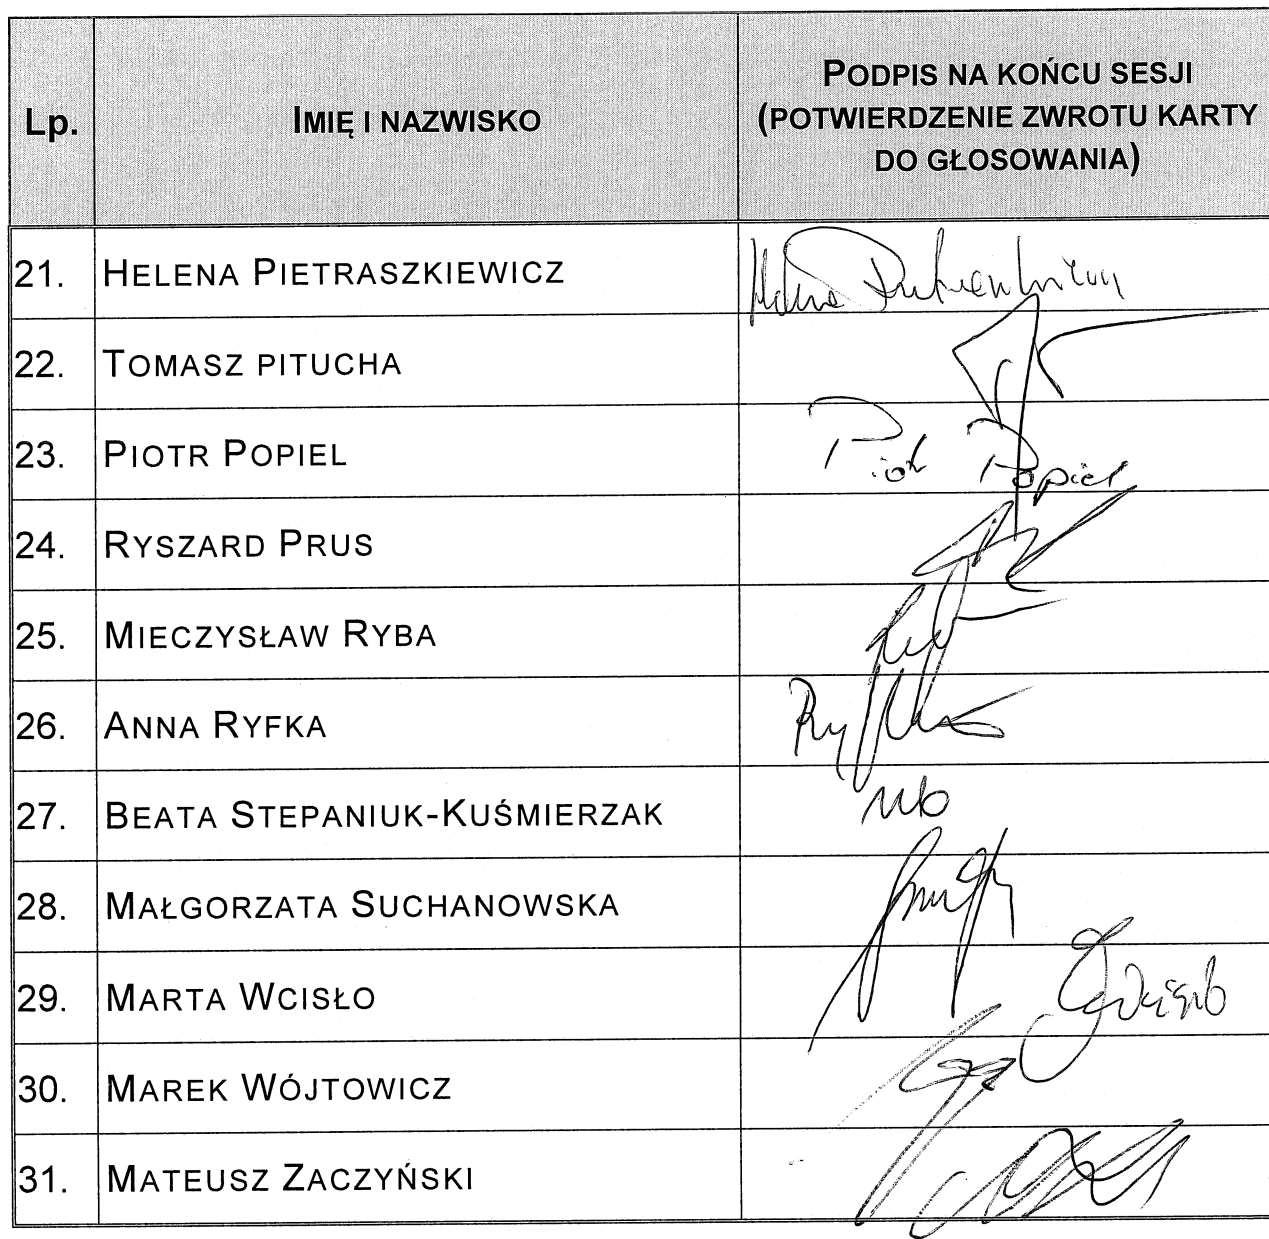 Lp.
IMIĘ I NAZWISKO
PODPIS NA KOŃCU SESJI
(POTWIERDZENIE ZWROTU KARTY
DO GŁOSOWANIA)
21. HELENA PIETRASZKIEWICZ
22. TOMASZ PITUCHA
23. PIOTR POPIEL Piotr Popiel
24. RYSZARD PRUS
25. MIECZYSŁAW RYBA
26. ANNA RYFKA
27. BEATA STEPANIUK-KUŚMIERZAK nb
28. MAŁGORZATA SUCHANOWSKA
29. MARTA WCISŁO
30. MAREK WÓJTOWICZ
31. MATEUSZ ZACZYŃSKI